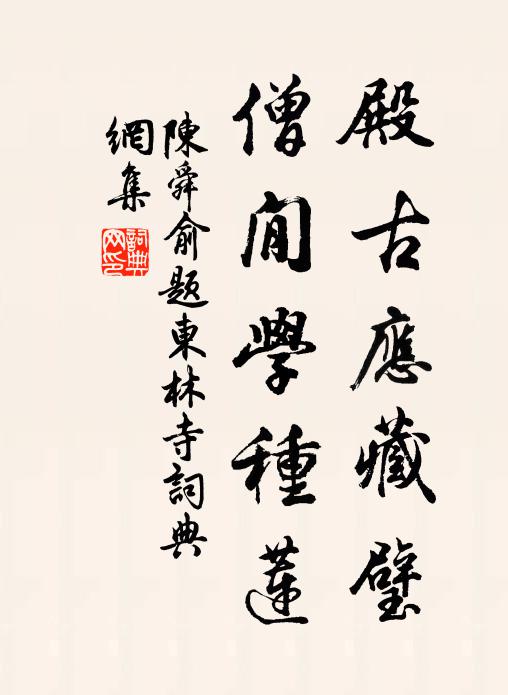 殿古應藏璧
僧閒學種蓮
陳舜俞題東林寺詞典
網集
詞典網印